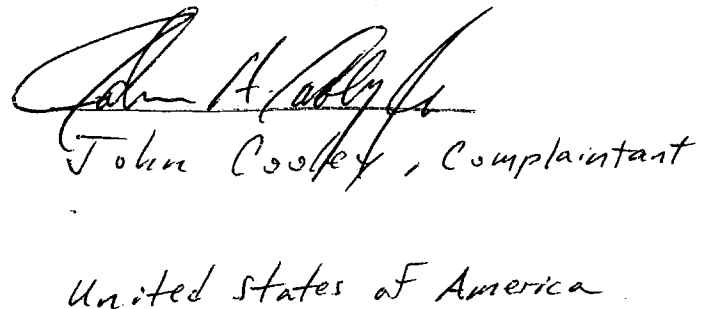 John H. Cooley Jr
John Cooley, Complaintant
United States of America